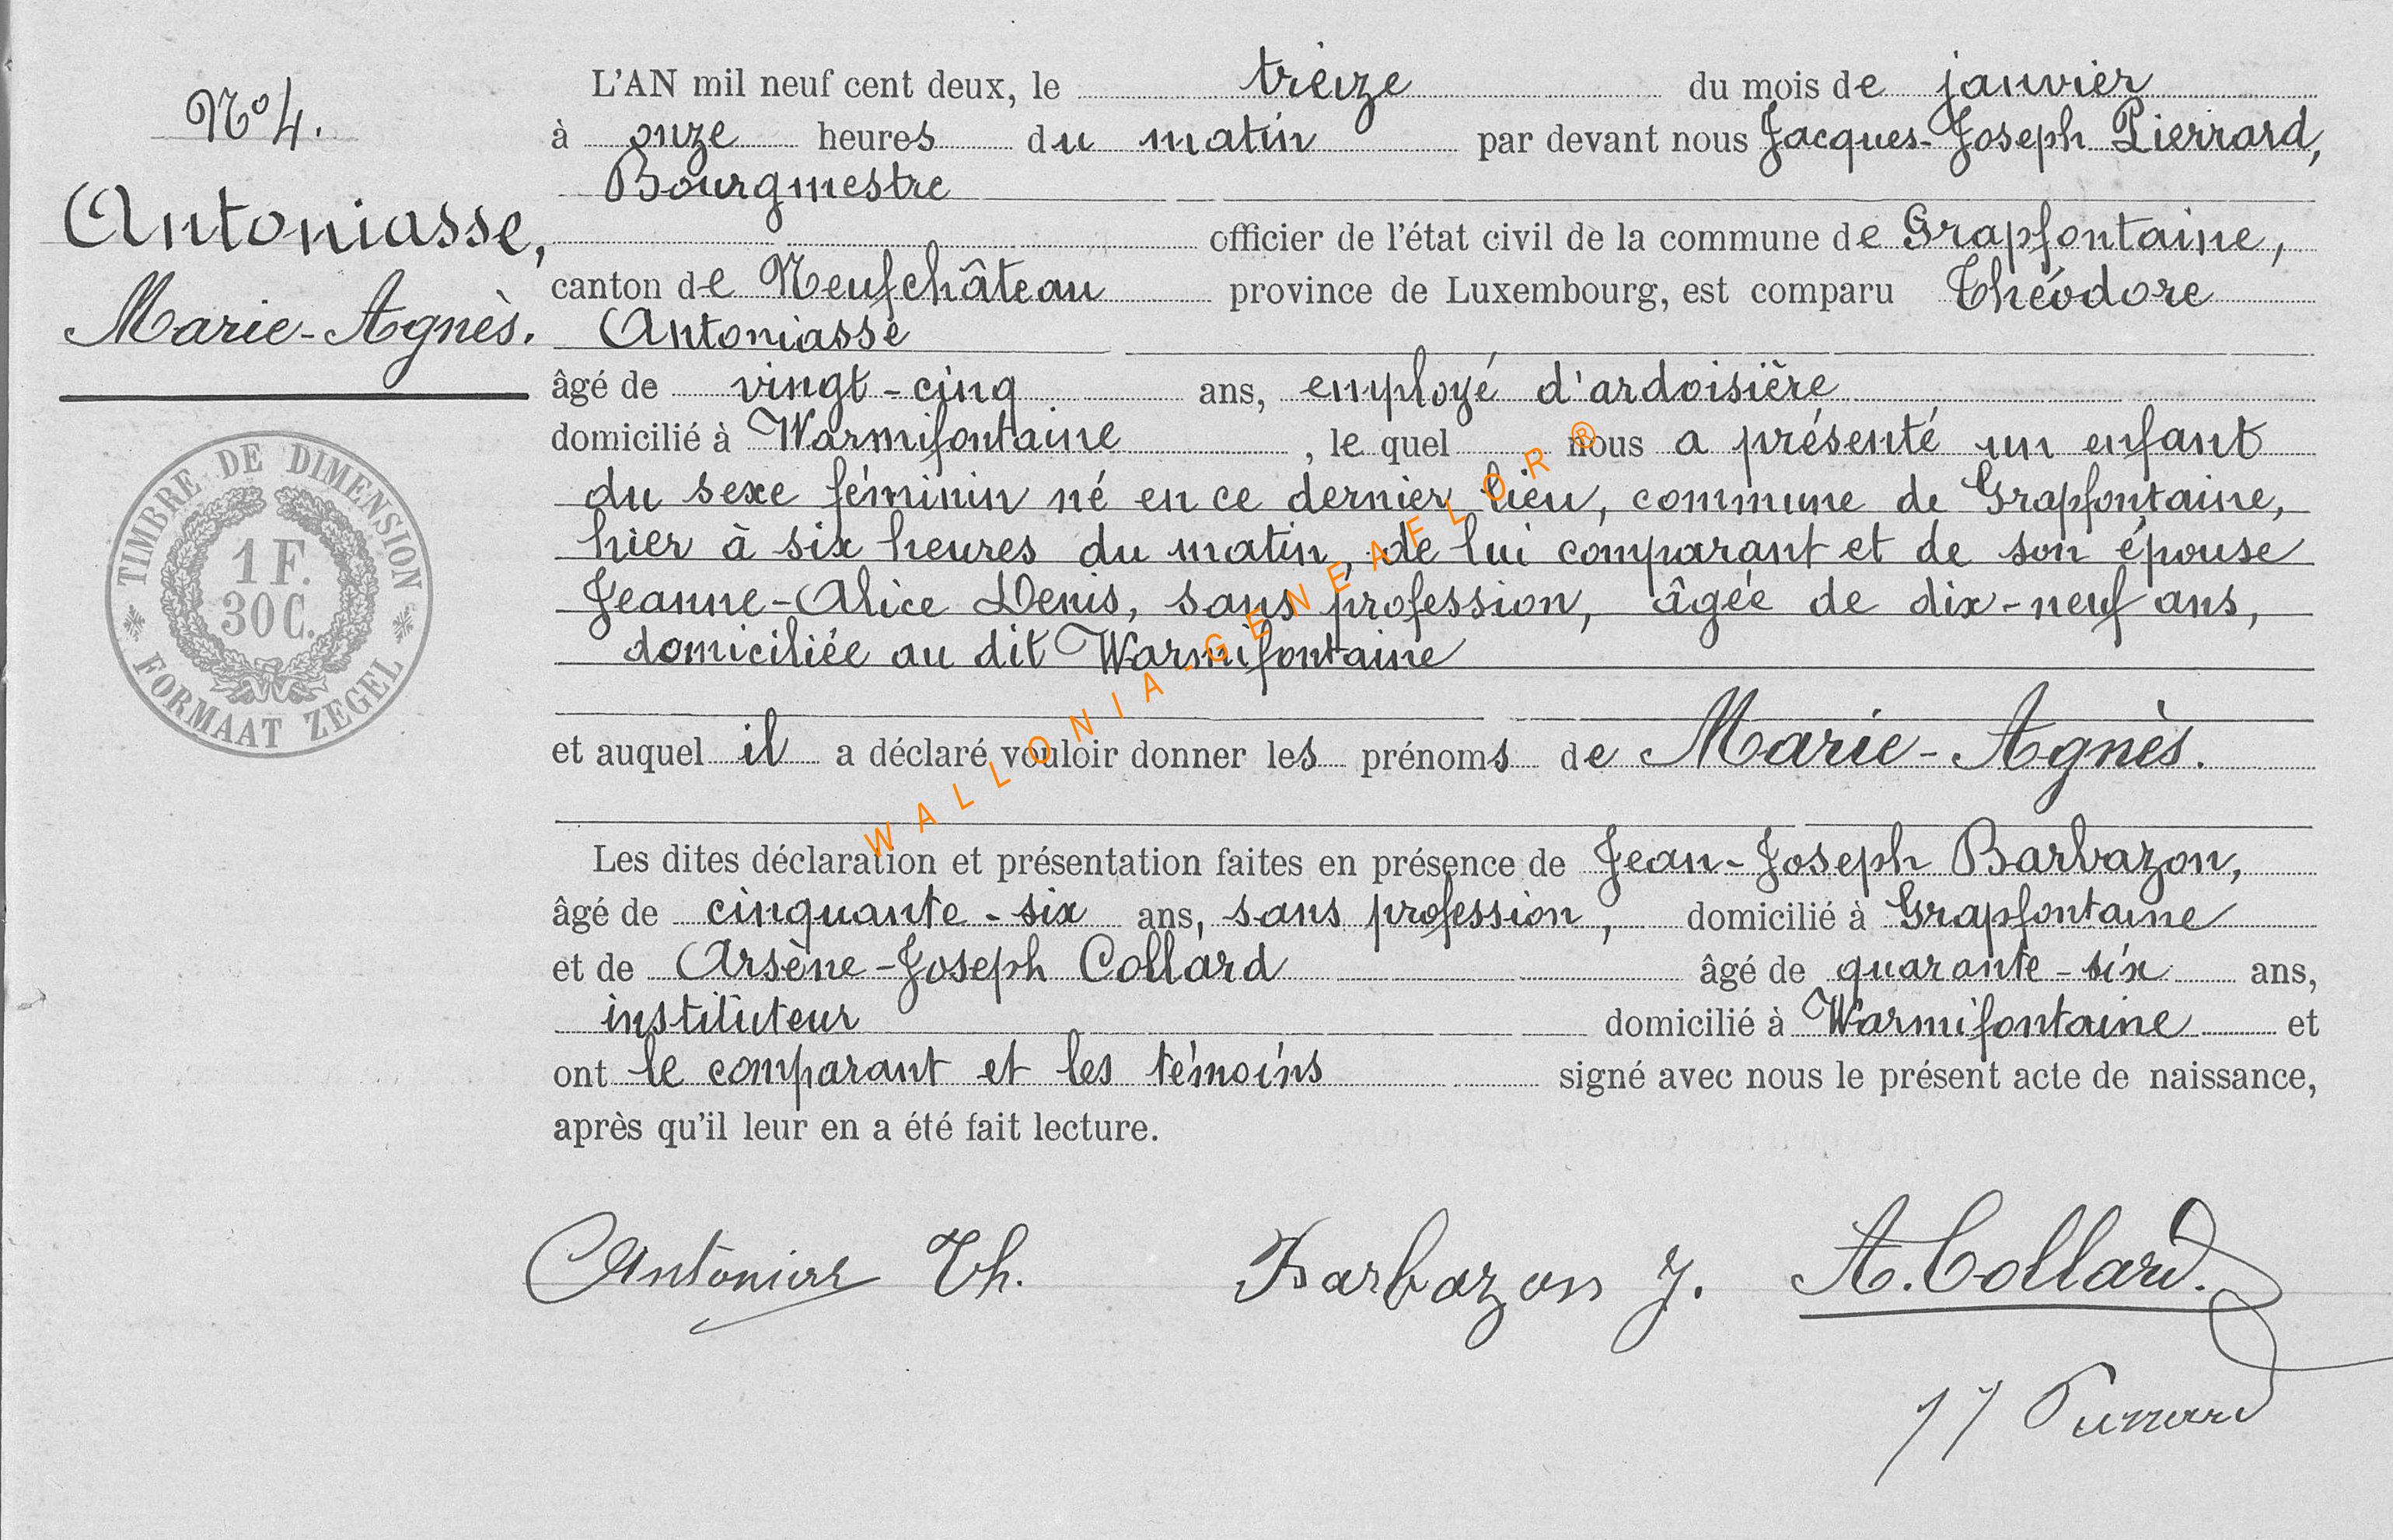 N° 4.
Antoniasse,
Marie-Agnès.
TIMBRE DE DIMENSION
1 F.
30 C.
FORMAAT ZEGEL
L'AN mil neuf cent deux, le treize du mois de janvier
à onze heures du matin par devant nous Jacques-Joseph Pierrard,
Bourgmestre
officier de l'état civil de la commune de Grapfontaine,
canton de Neufchâteau province de Luxembourg, est comparu Théodore
Antoniasse
âgé de vingt-cinq ans, employé d'ardoisière
domicilié à Warmifontaine, le quel nous a présenté un enfant
du sexe féminin né en ce dernier lieu, commune de Grapfontaine,
hier à six heures du matin, de lui comparant et de son épouse
Jeanne-Alice Denis, sans profession, âgée de dix-neuf ans,
domiciliée au dit Warmifontaine
et auquel il a déclaré vouloir donner les prénoms de Marie-Agnès.
Les dites déclaration et présentation faites en présence de Jean-Joseph Barbazon,
âgé de cinquante-six ans, sans profession, domicilié à Grapfontaine
et de Arsène-Joseph Collard âgé de quarante-six ans,
instituteur domicilié à Warmifontaine et
ont le comparant et les témoins signé avec nous le présent acte de naissance,
après qu'il leur en a été fait lecture.
Th. Barbazon J. A. Collard.
JJ Pierrard
WALLONIA-GENEAFELOR ®